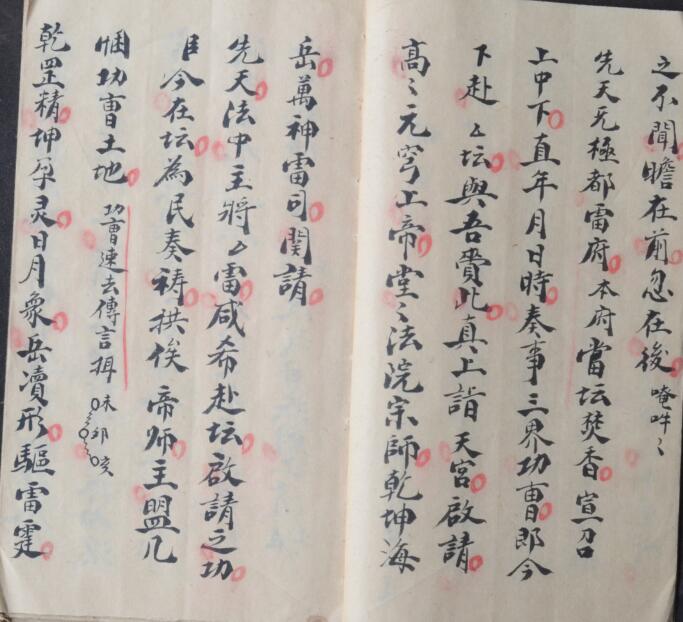 之不聞瞻在前忽在後 唵吽〻
先天无極都雷府本府當坛焚香宣召
上中下直年月日時奏事三界功曹郎今
下赴厶坛與吾賫此真上詣天宮啟請
高〻元穹上帝堂〻法院宗師乾坤海
岳萬神雷司関請
先天法中主將厶雷咸希赴坛啟請之功
今在坛為民奏祷拱俟帝师主盟凡
悃功曹土地 功曹速去傳言揖
乾罡精坤孕灵日月象岳凟形驅雷霆